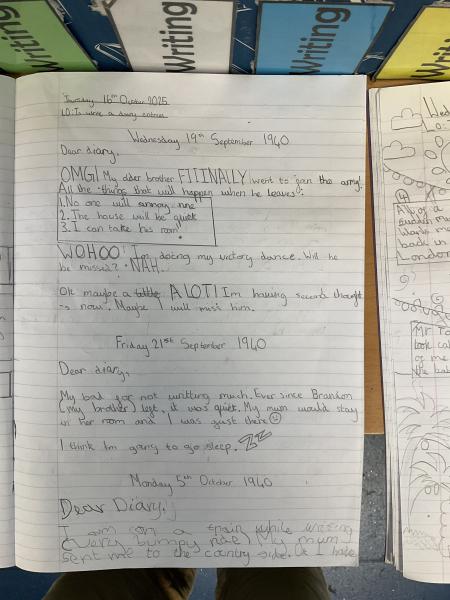 Writing
Writing
Writing
Writing
Thursday 16th October 2025
LO: To write a diary entries
Wednesday 19th September 1940
Dear diary,
OMG! My older brother FIIINALLY went to join the army!
All the things that will happen when he leaves:
1. No one will annoy me
2. The house will be quiet
3. I can take his room!
WOHOO! I'm doing my victory dance. Will he
be missed? NAH.
Ok maybe a little A LOT! Im having second thought
s now. Maybe I will miss him.
Friday 21st September 1940
Dear diary,
My bad for not writting much. Ever since Brandon
(my brother) left, it was quiet. My mum would stay
in her room and I was just there
I think Im going to go sleep. Zzz
Monday 5th October 1940
Dear Diary,
I am on a train while writing
(Very bumpy ride) My mum
sent me to the country side. Ok I have
Wed
LO:
4
All of a
sudden
back in
London
Mr To
look
of me
the